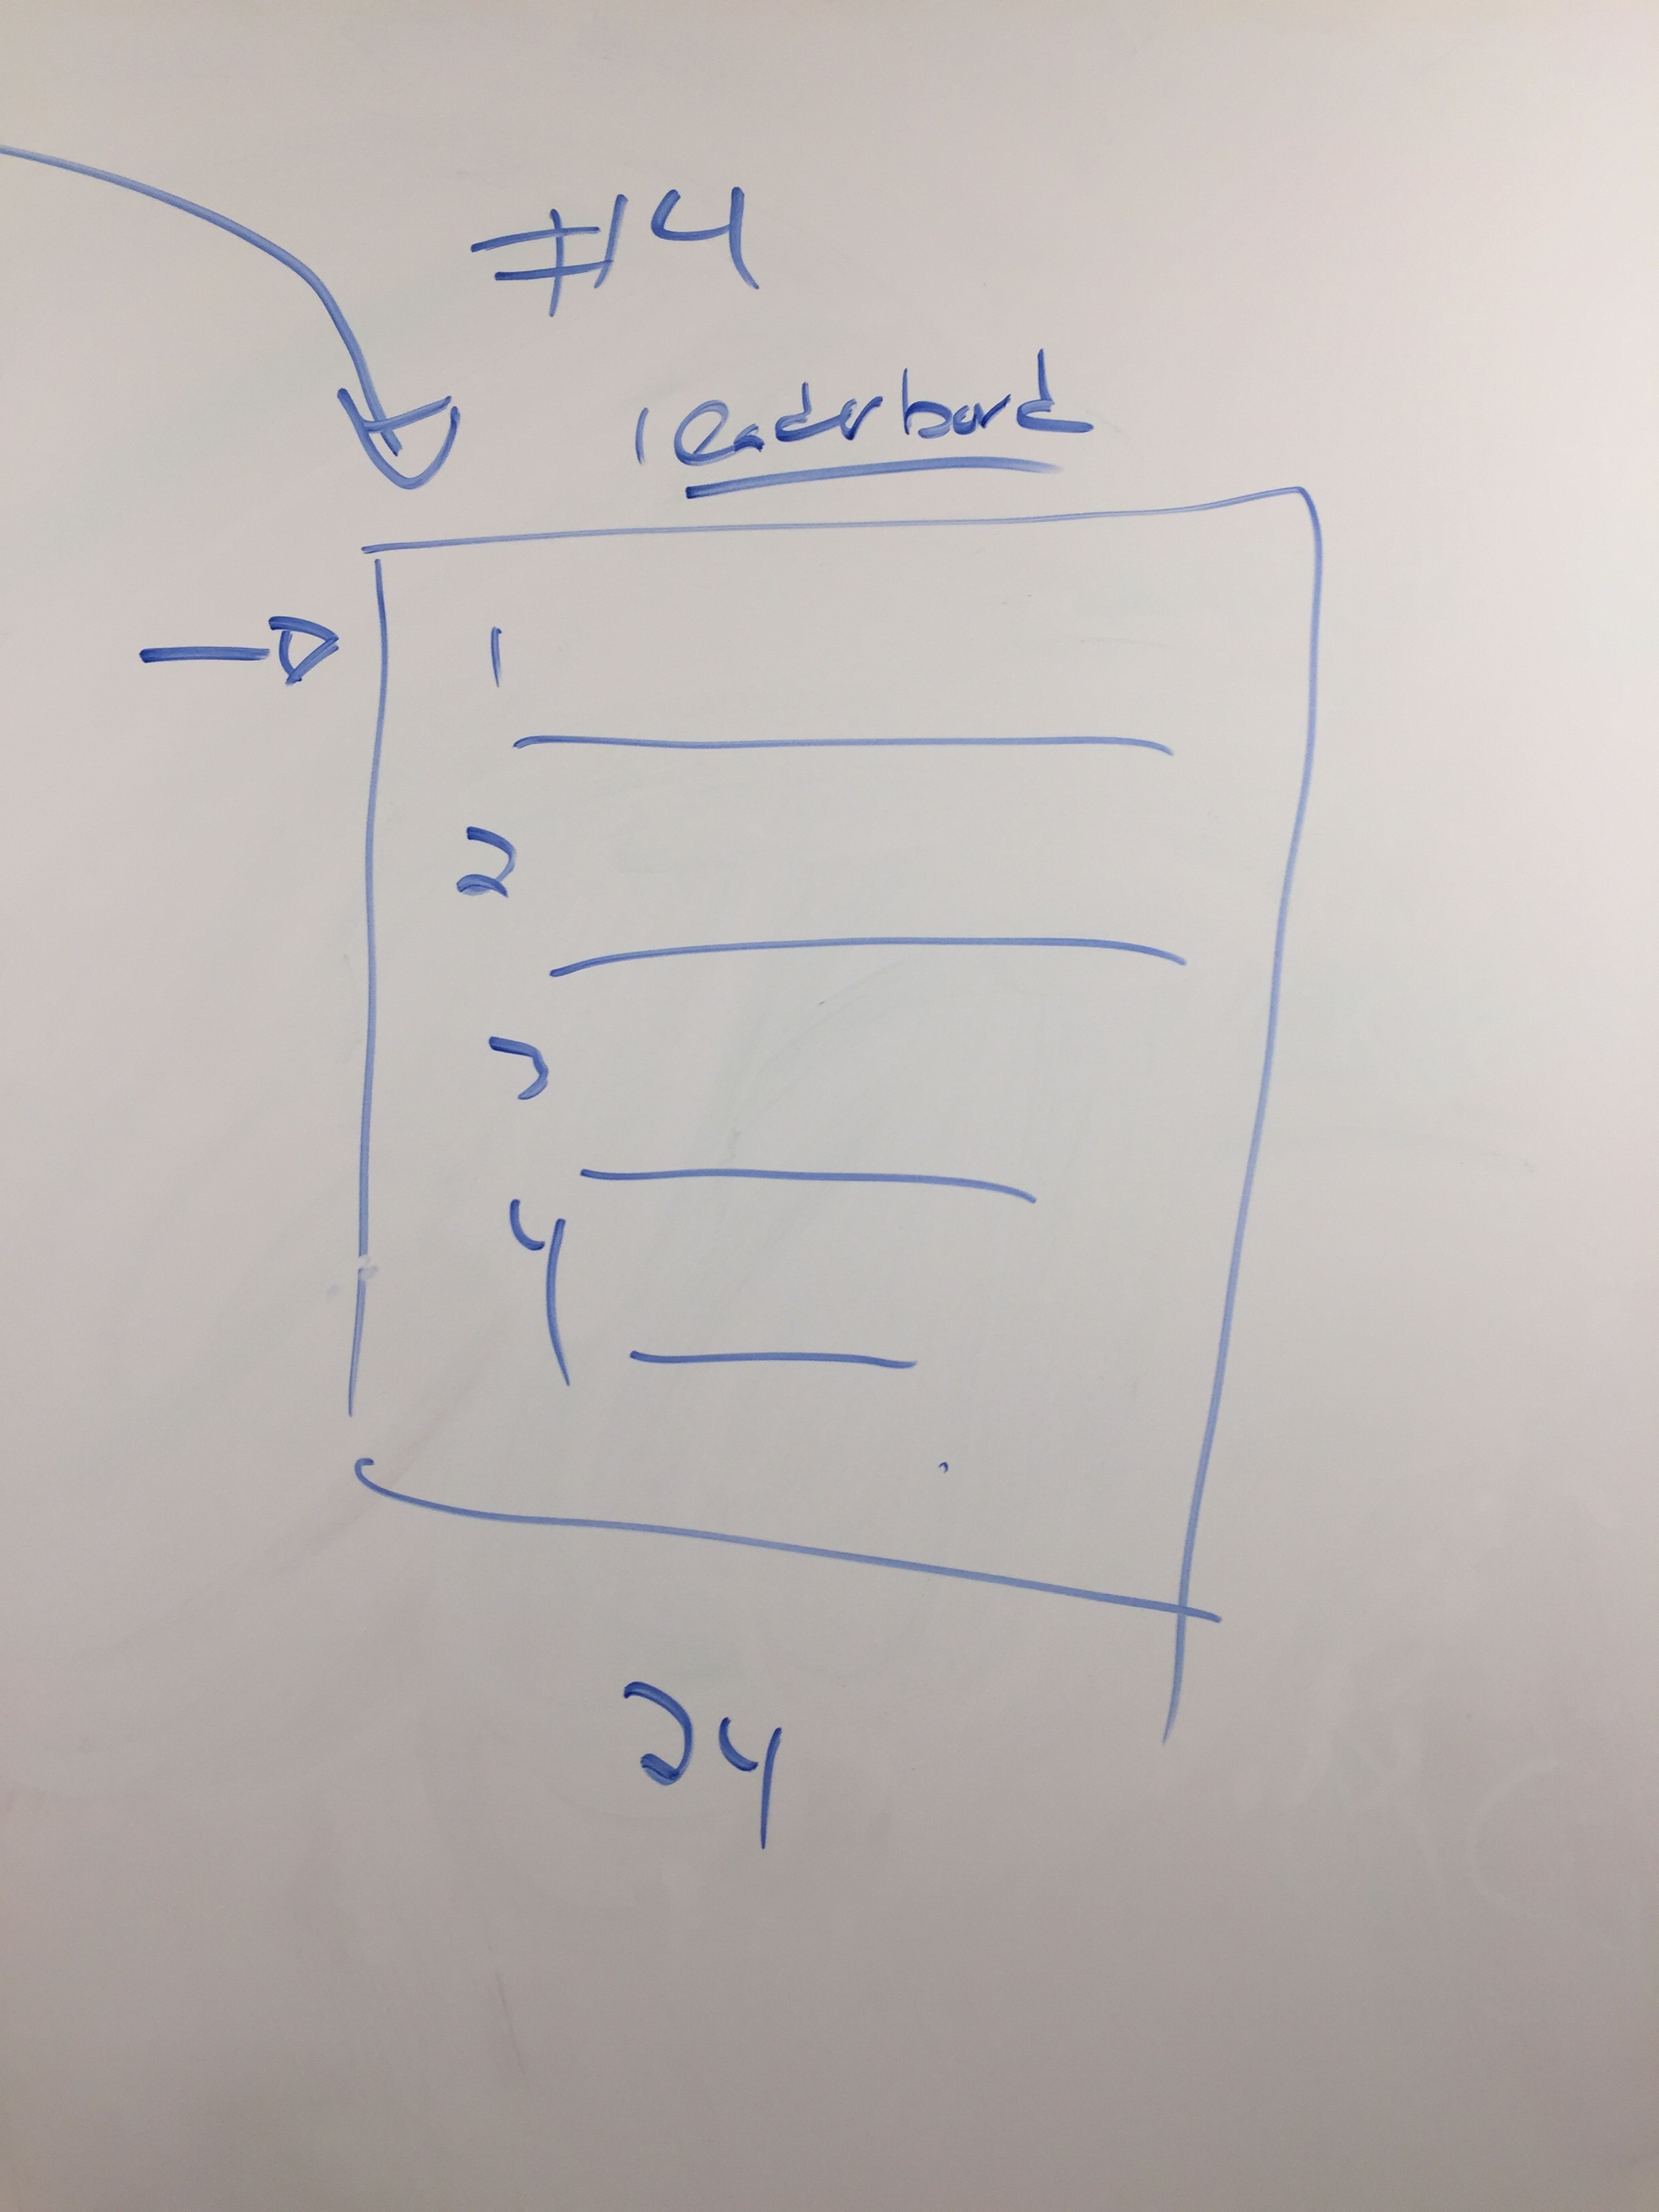 #4
leaderbord
1
2
3
4
24